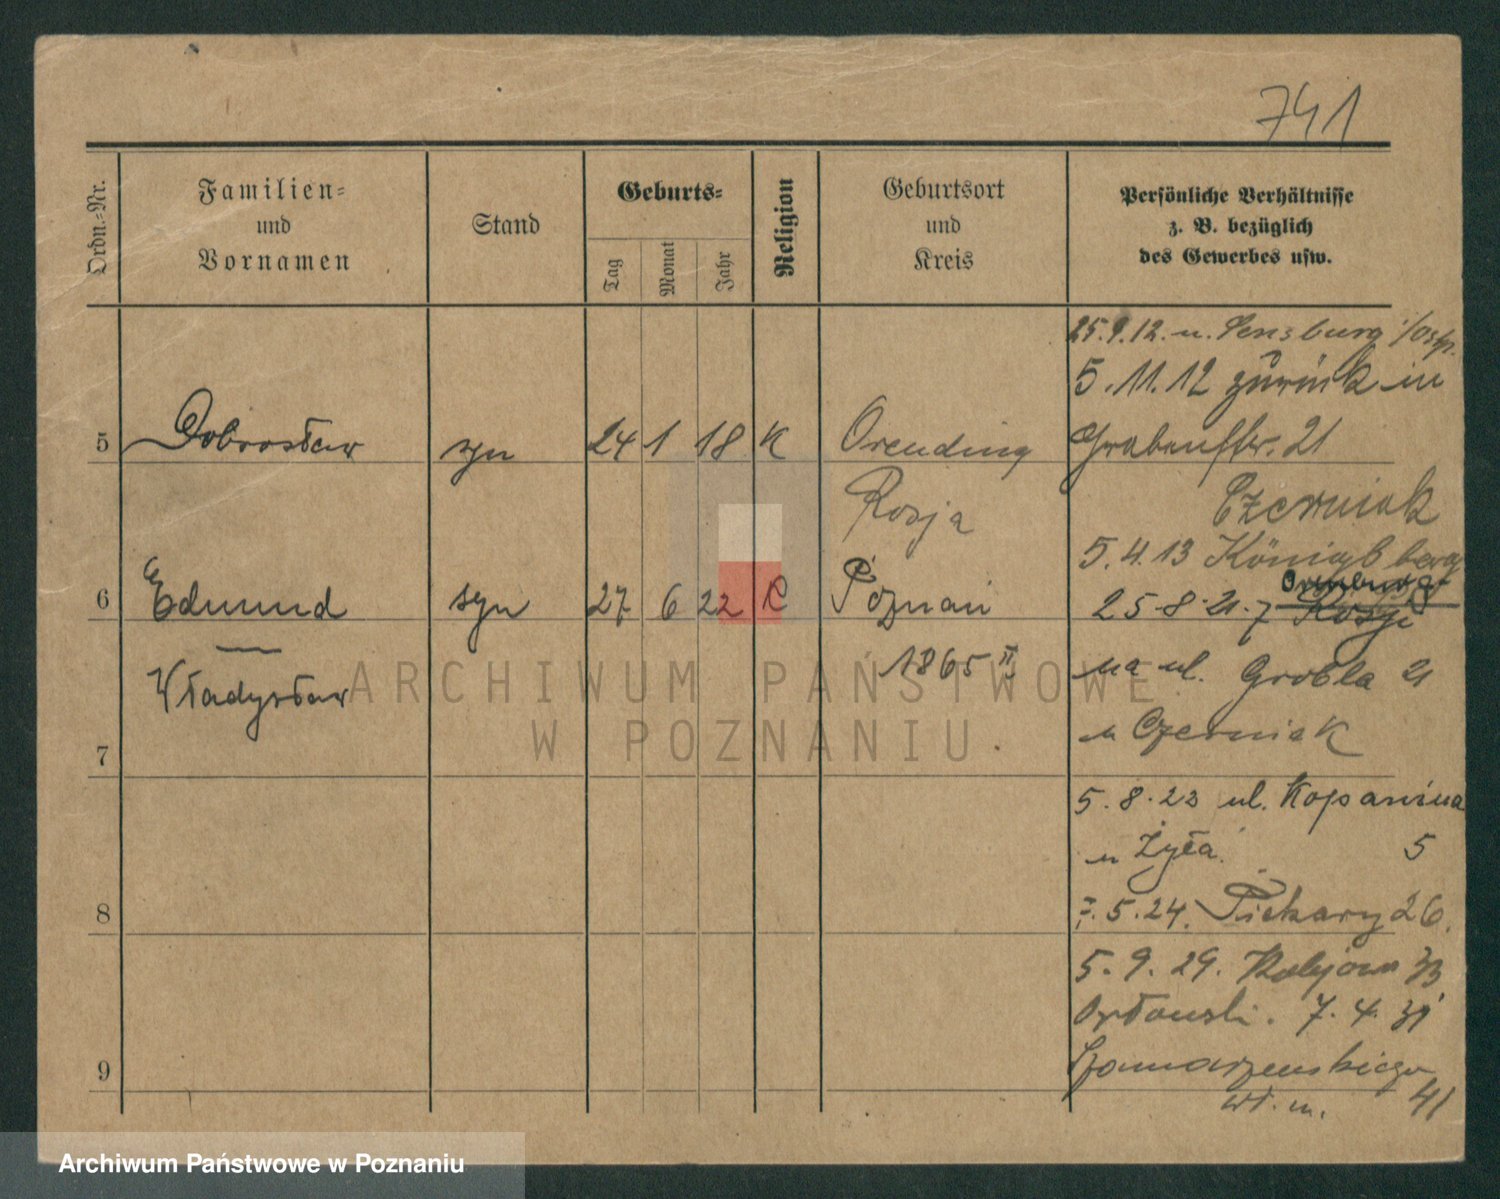 741
Ordn.-Nr.
Familien-
und
Vornamen
Stand
Geburts-
Tag
Monat
Jahr
Religion
Geburtsort
und
Kreis
Persönliche Verhältnisse
z. B. bezüglich
des Gewerbes usw.
25.9.12. n. Sensburg i/Ostp.
5.11.12 zurück in
5 Dobrosław syn 24 1 18 K Orending Grabenstr. 21
Rosja Czerniak
5.4.13 Königsberg
Orenburg
6 Edmund syn 27 6 22 K Poznań 25.8.21. z Rosji
Władysław 1865 II na ul. Grobla 21
7 u Czerniak
5.8.23 ul. Kopanina
u Żyła 5
8 7.5.24. Piekary 26.
5.9.29. Kolejowa 33
Orłowski. 7.4.31
9 Szamarzewskiego
wł. m. 41
ARCHIWUM PAŃSTWOWE
W POZNANIU
Archiwum Państwowe w Poznaniu